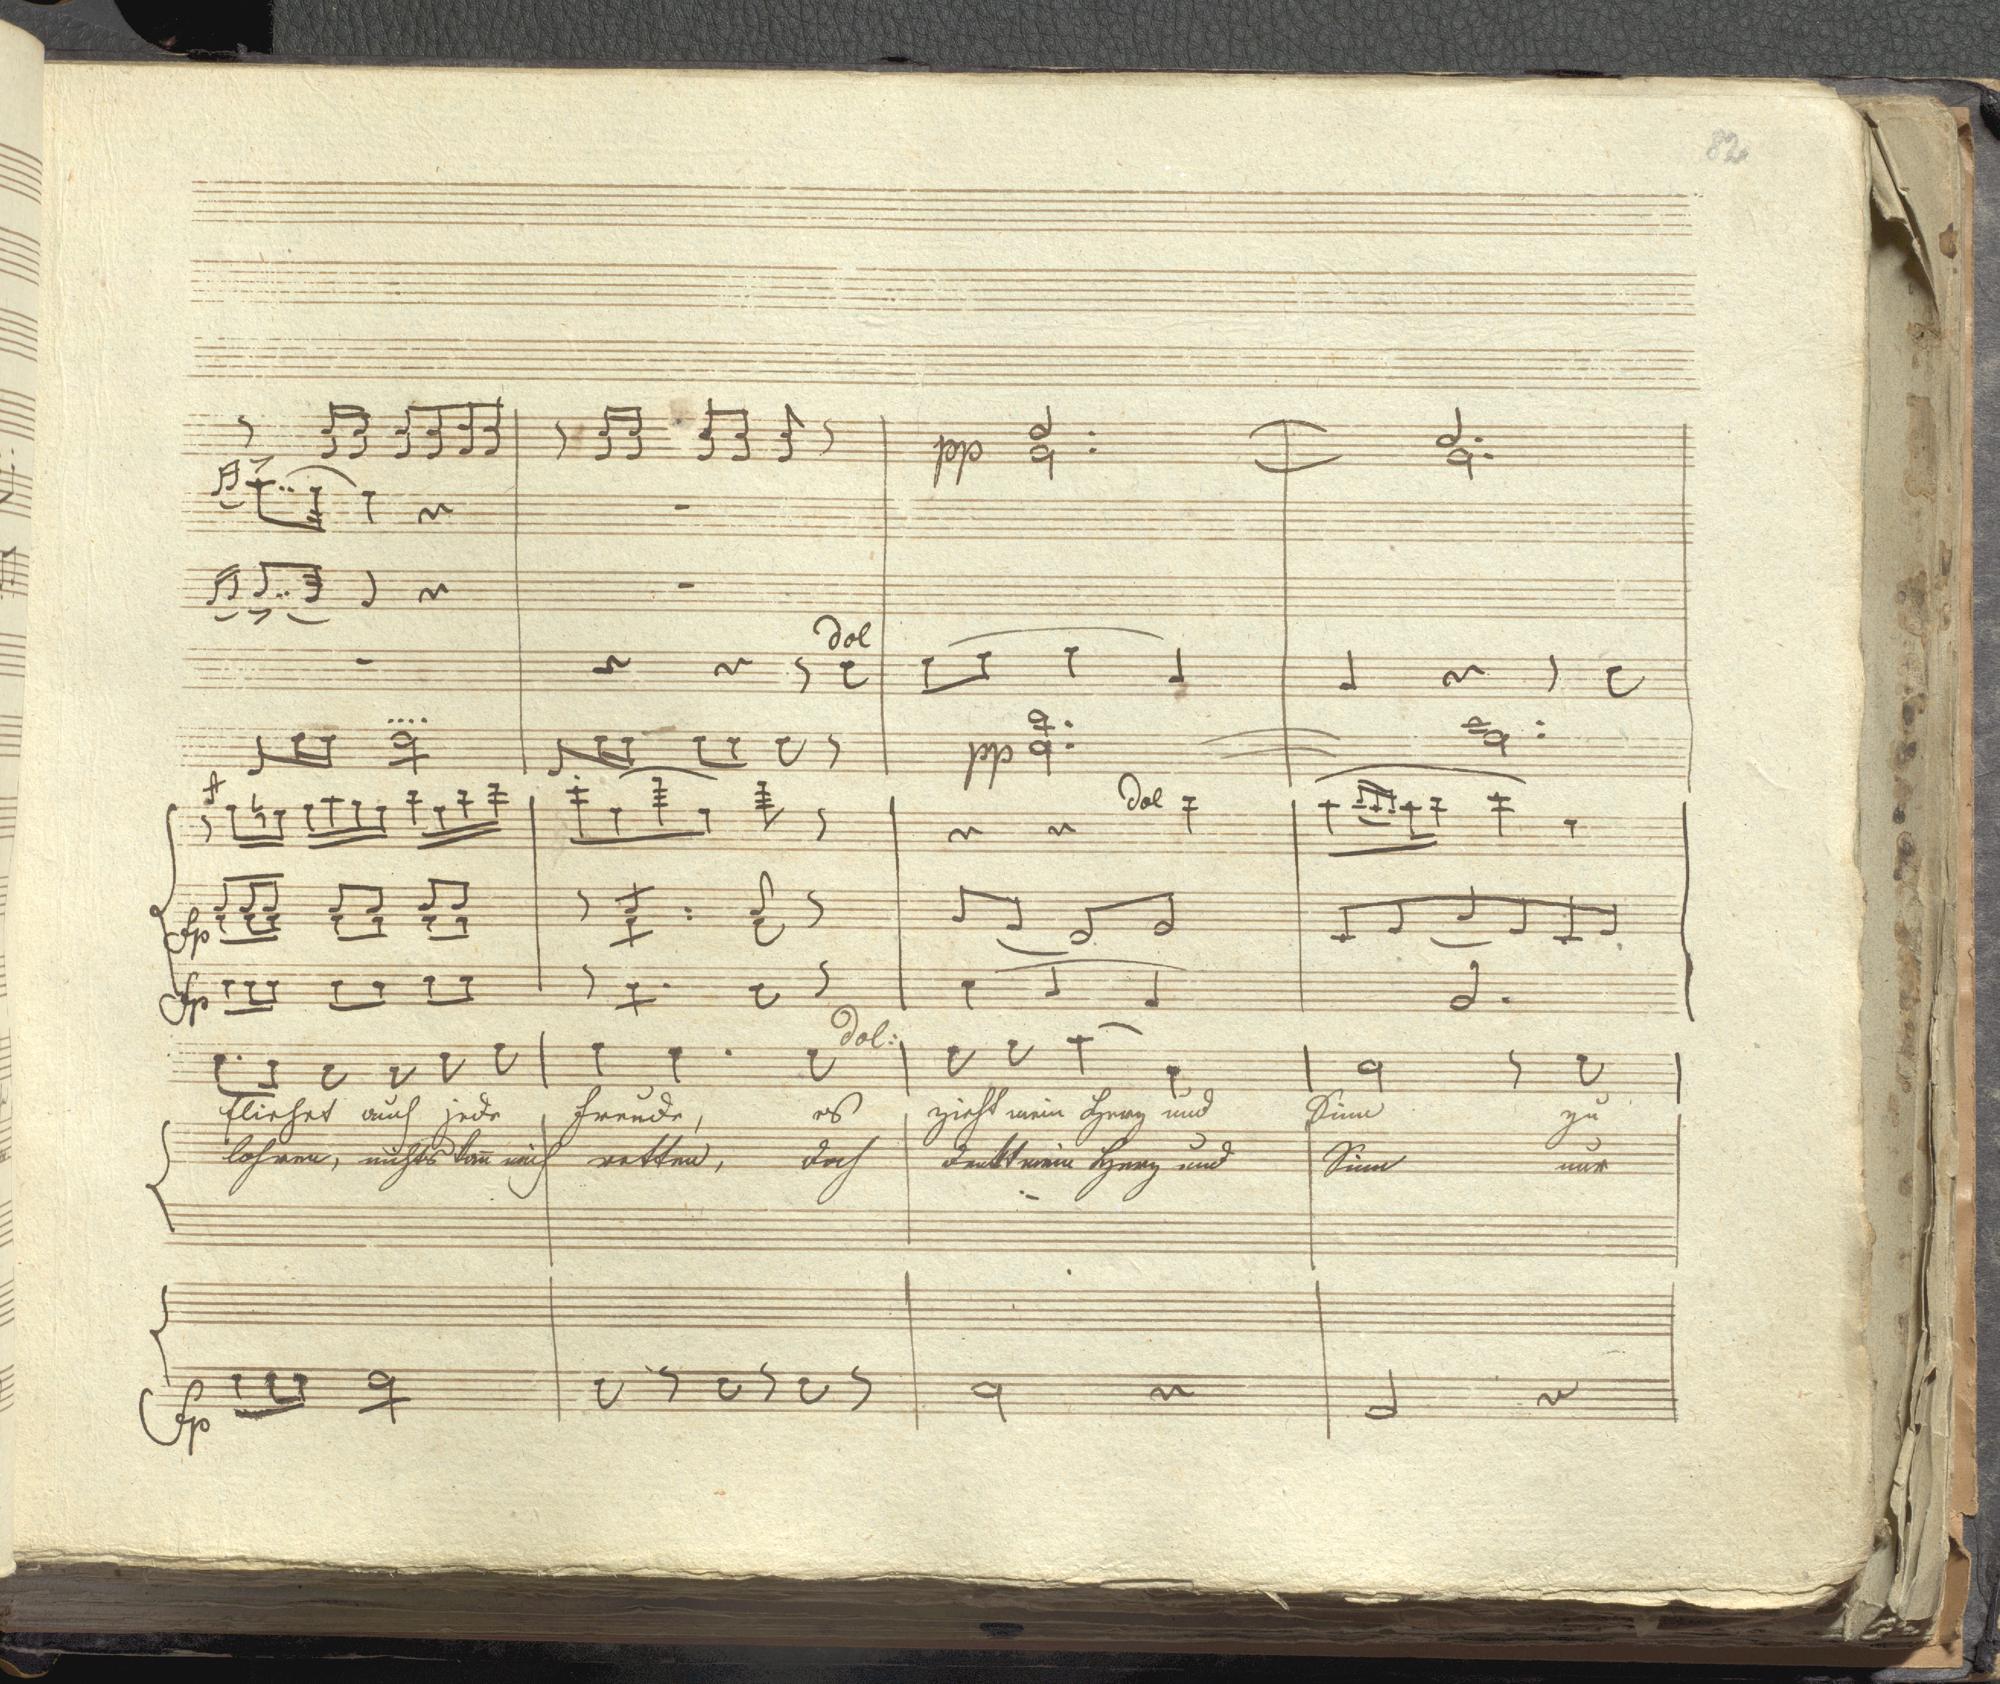 82
pp
dol
pp
dol
fp
fp
dol:
fliehet auch jede Freude, es zieht mein Herz und Sinn zu
lohren, nichts kann mich retten, doch denkt mein Herz und Sinn nur
fp